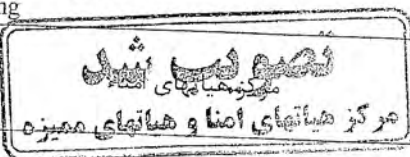 ng
تصویب شد
مرکز هیأتهای امناء
مرکز هیاتهای امنا و هیاتهای ممیزه